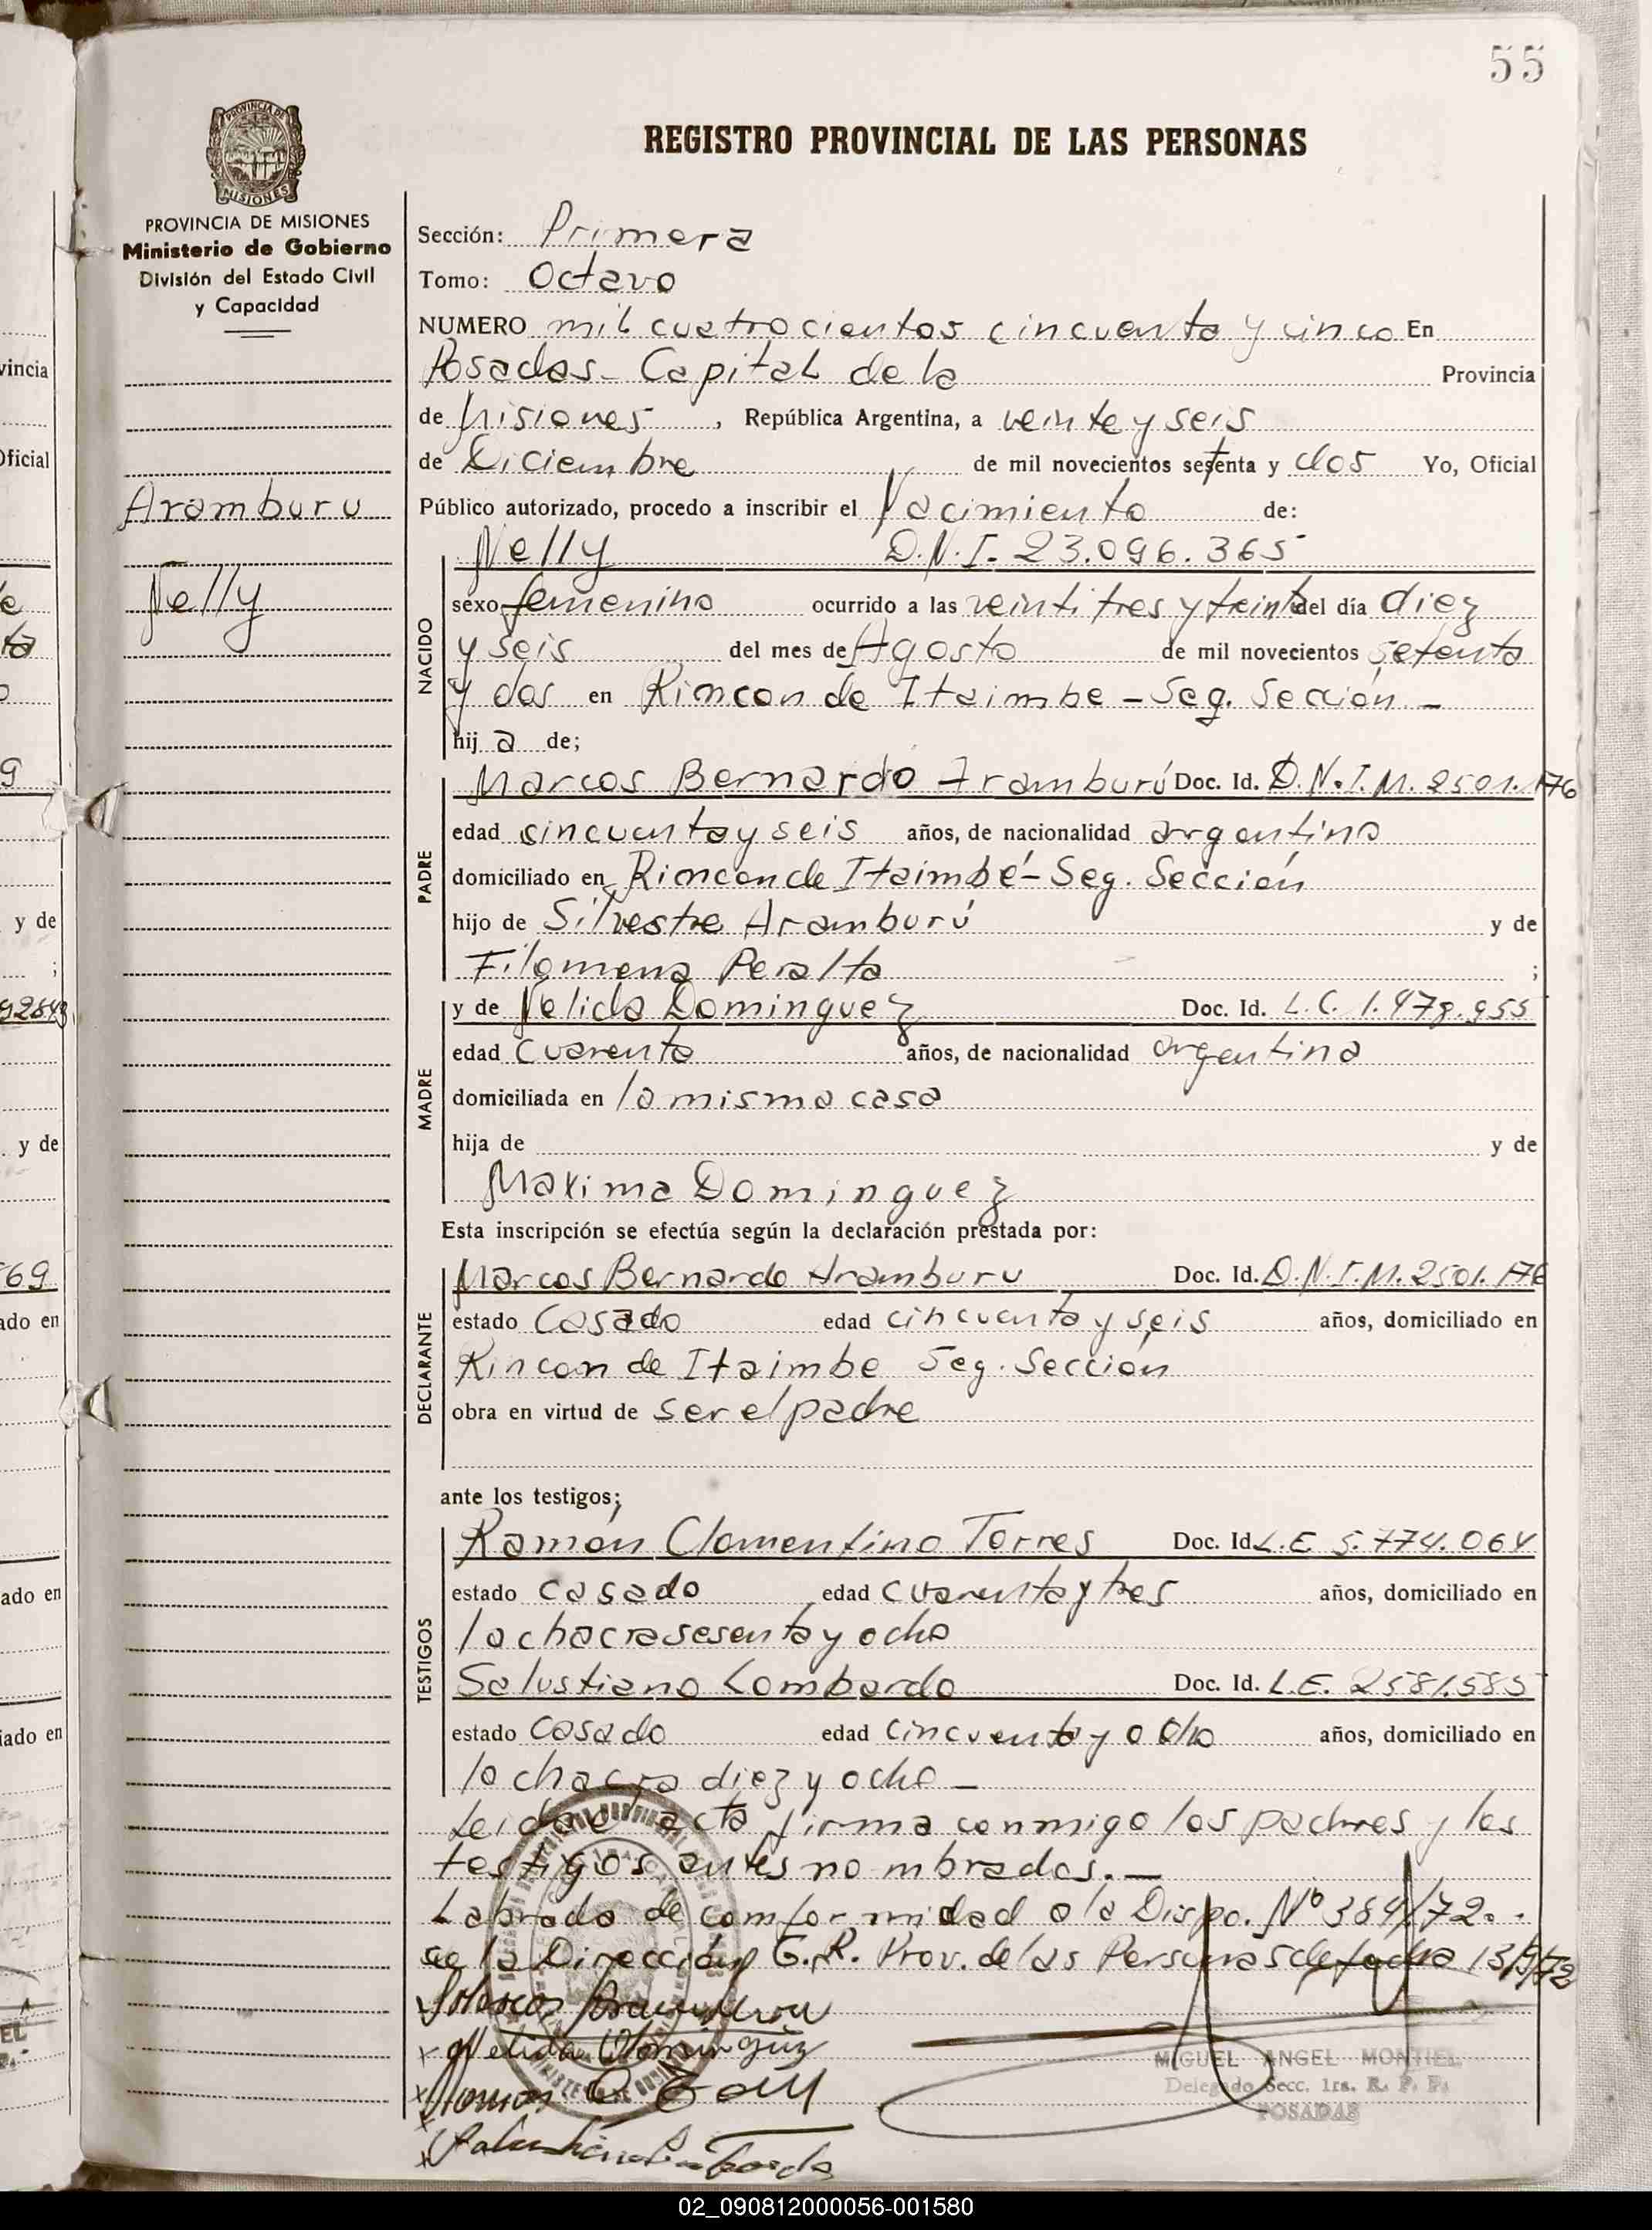 55
REGISTRO PROVINCIAL DE LAS PERSONAS
PROVINCIA DE MISIONES
MISIONES
PROVINCIA DE MISIONES
Ministerio de Gobierno
División del Estado Civil
y Capacidad
Aramburu
Nelly
Sección: Primera
Tomo: Octavo
NUMERO mil cuatrocientos cincuenta y cinco En
Posadas - Capital de la Provincia
de Misiones, República Argentina, a veinte y seis
de Diciembre de mil novecientos setenta y dos Yo, Oficial
Público autorizado, procedo a inscribir el Nacimiento de:
Nelly D.N.I. 23.096.365
NACIDO
sexo femenino ocurrido a las veintitres y treinta del día diez
y seis del mes de Agosto de mil novecientos setenta
y dos en Rincon de Itaimbe - Seg. Sección -
hij a de;
PADRE
Marcos Bernardo Aramburú Doc. Id. D.N.I.M. 2501.176
edad cincuenta y seis años, de nacionalidad argentino
domiciliado en Rincon de Itaimbé - Seg. Sección
hijo de Silvestre Aramburú y de
Filomena Peralta ;
MADRE
y de Nelida Dominguez Doc. Id. L.C. 1.479.955
edad cuarenta años, de nacionalidad argentina
domiciliada en la misma casa
hija de y de
Maxima Dominguez
Esta inscripción se efectúa según la declaración prestada por:
DECLARANTE
Marcos Bernardo Aramburu Doc. Id. D.N.I.M. 2501.176
estado Casado edad cincuenta y seis años, domiciliado en
Rincon de Itaimbe Seg. Sección
obra en virtud de ser el padre
ante los testigos;
TESTIGOS
Ramón Clementino Torres Doc. Id. L.E. 5.774.064
estado casado edad cuarenta y tres años, domiciliado en
la chacra sesenta y ocho
Salustiano Lombardo Doc. Id. L.E. 2581.585
estado casado edad cincuenta y ocho años, domiciliado en
la chacra diez y ocho -
Leida el acta firma conmigo los padres y los
testigos antes nombrados. -
Labrada de comformidad a la Dispo. Nº 384/72.
de la Dirección G.R. Prov. de las Personas de fecha 13/9/72
x Nelida Dominguez
MIGUEL ANGEL MONTIEL
Delegado Secc. 1ra. R. P. P.
POSADAS
02_090812000056-001580
vincia
Oficial
y de
y de
69
ado en
ado en
iado en